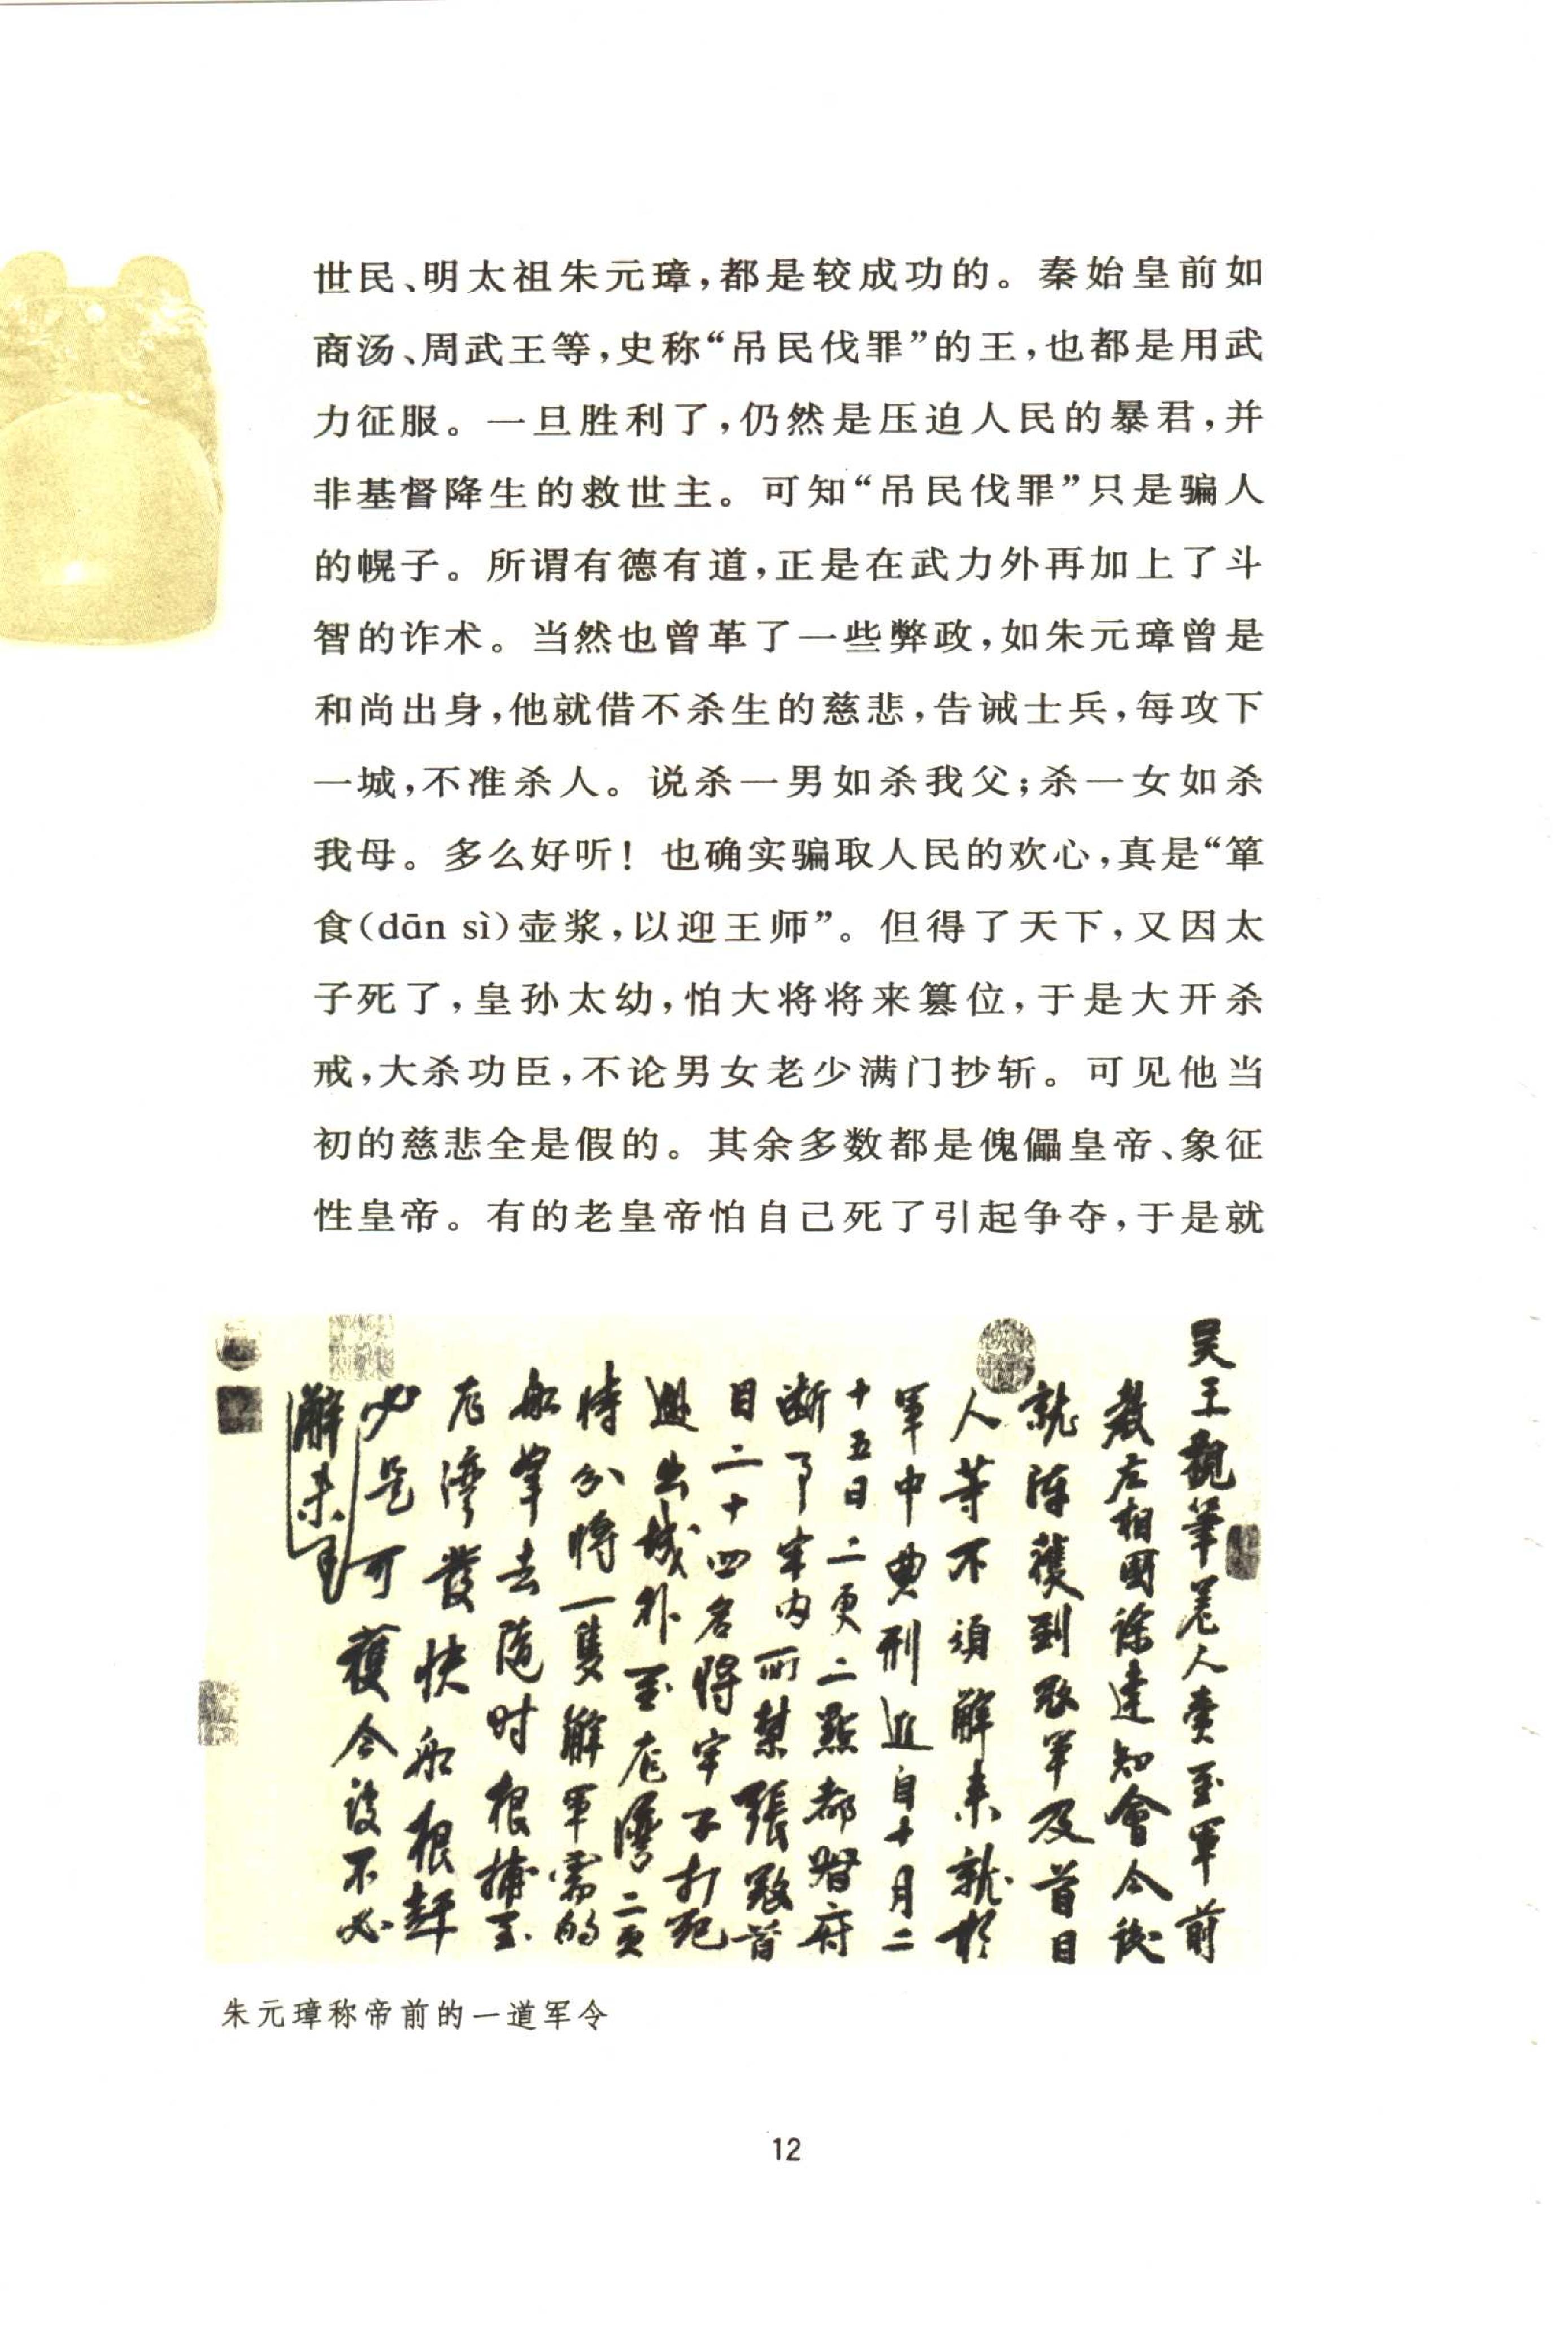 世民、明太祖朱元璋，都是较成功的。秦始皇前如
商汤、周武王等，史称“吊民伐罪”的王，也都是用武
力征服。一旦胜利了，仍然是压迫人民的暴君，并
非基督降生的救世主。可知“吊民伐罪”只是骗人
的幌子。所谓有德有道，正是在武力外再加上了斗
智的诈术。当然也曾革了一些弊政，如朱元璋曾是
和尚出身，他就借不杀生的慈悲，告诫士兵，每攻下
一城，不准杀人。说杀一男如杀我父；杀一女如杀
我母。多么好听！也确实骗取人民的欢心，真是“箪
食（dān sì）壶浆，以迎王师”。但得了天下，又因太
子死了，皇孙太幼，怕大将将来篡位，于是大开杀
戒，大杀功臣，不论男女老少满门抄斩。可见他当
初的慈悲全是假的。其余多数都是傀儡皇帝、象征
性皇帝。有的老皇帝怕自己死了引起争夺，于是就
吴王親筆差人赍至軍前
教左相國徐達知會今後
就陣獲到敌軍及首目
人等不須解来就於
軍中典刑近自十月二
十五日二更二點都督府
断事牢内所禁張敌首
目二十四名将牢子打死
越出城外至瓦灣二更
時分将一隻解軍需的
船挐去随时根捕至
瓦灣發快船根趕
必是可獲今後不必
解来
朱元璋称帝前的一道军令
12